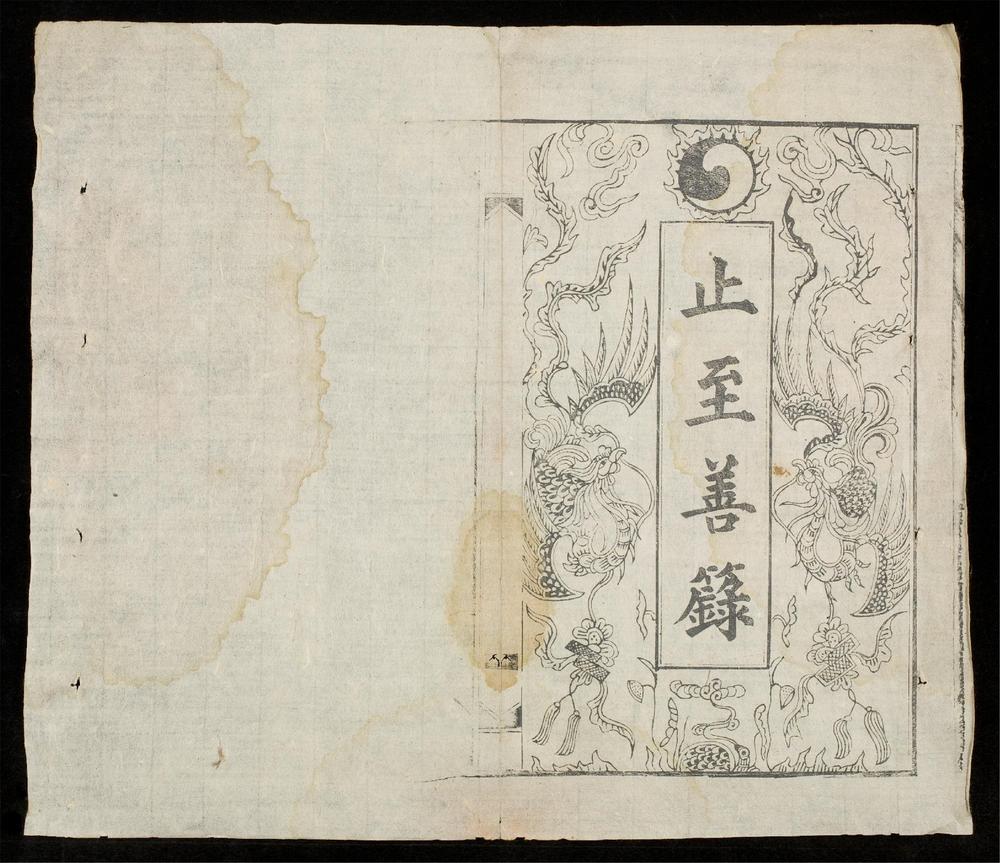 止至善籙